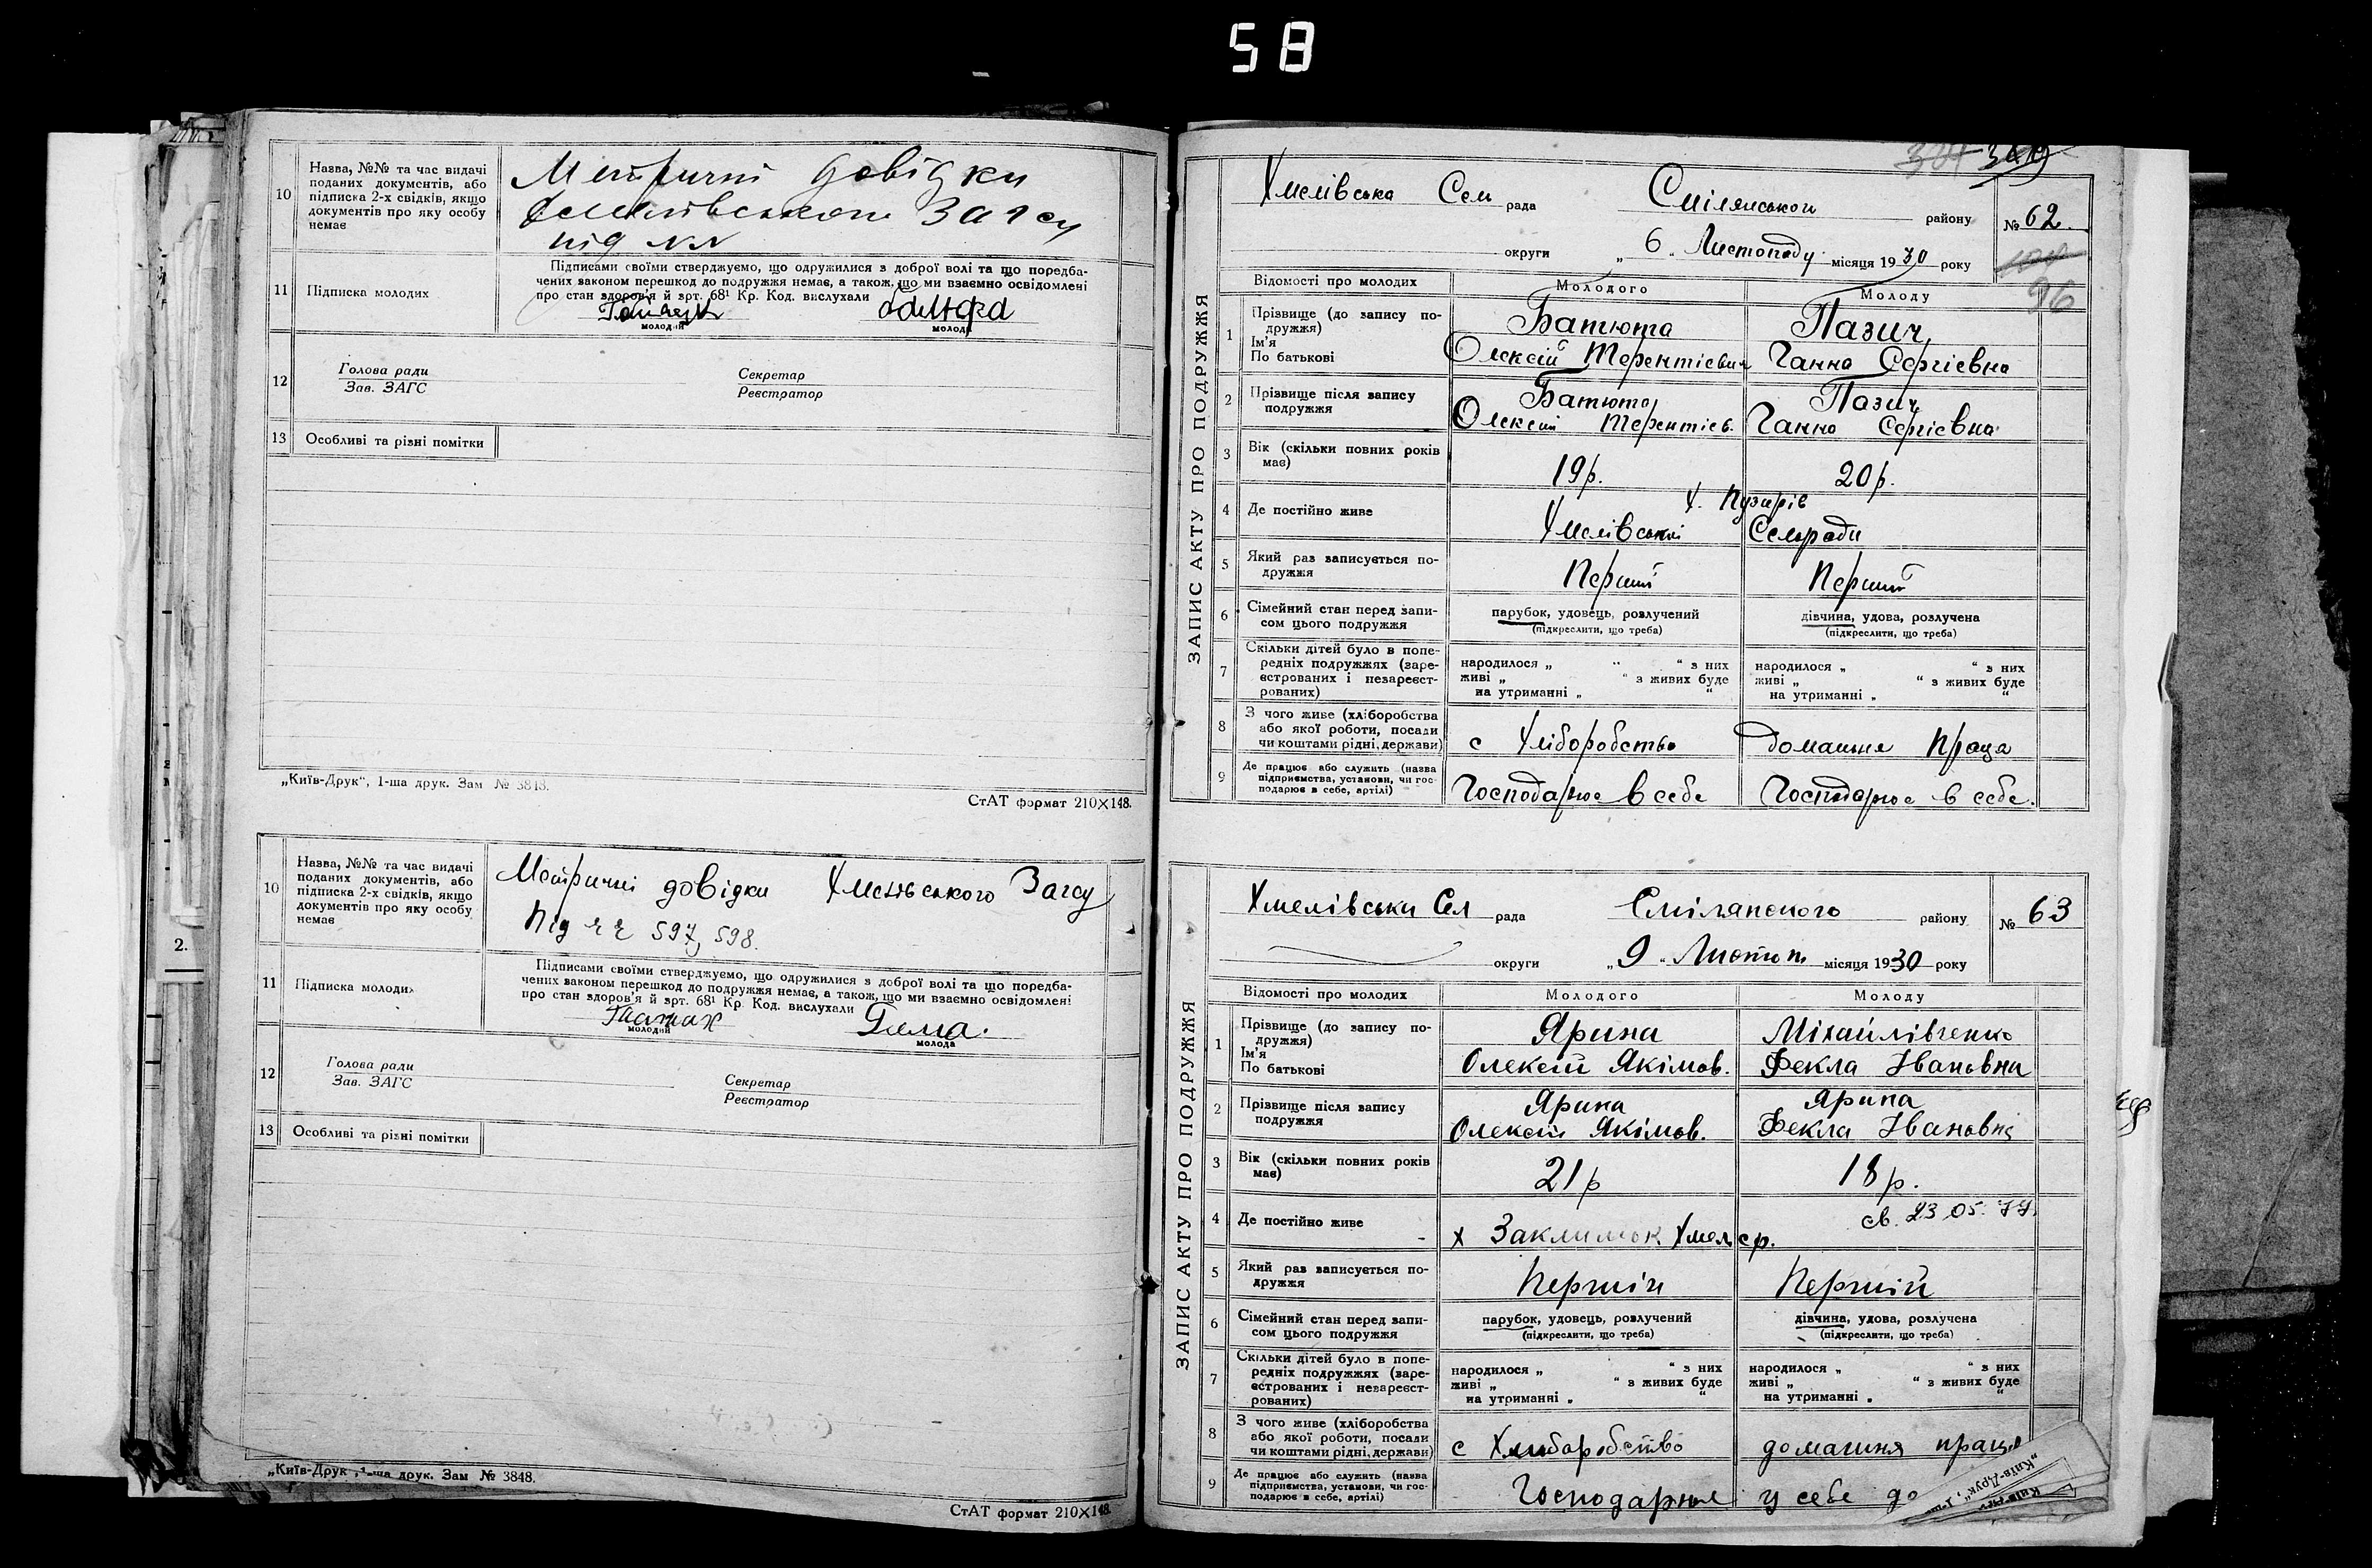 58
10
Назва, №№ та час видачі
поданих документів, або
підписка 2-х свідків, якщо
документів про яку особу
немає
Метричні довідки
Загсу
під
11
Підписка молодих
Підписами своїми стверджуємо, що одружилися з доброї волі та що поредба-
чених законом перешкод до подружжя немає, а також, що ми взаємно освідомлені
про стан здоров'я й зрт. 68¹ Кр. Код. вислухали
молодий
молода
12
Голова ради
Зав. ЗАГС
Секретар
Реєстратор
13
Особливі та різні помітки
„Київ-Друк“, 1-ша друк. Зам № 3848.
СтАТ формат 210×148.
10
Назва, №№ та час видачі
поданих документів, або
підписка 2-х свідків, якщо
документів про яку особу
немає
Метричні довідки Хмелівського Загсу
Під 597, 598.
11
Підписка молодих
Підписами своїми стверджуємо, що одружилися з доброї волі та що поредба-
чених законом перешкод до подружжя немає, а також, що ми взаємно освідомлені
про стан здоров'я й зрт. 68¹ Кр. Код. вислухали
молодий
молода
12
Голова ради
Зав. ЗАГС
Секретар
Реєстратор
13
Особливі та різні помітки
„Київ-Друк“, 1-ша друк. Зам № 3848.
СтАТ формат 210×148.
2.
ЗАПИС АКТУ ПРО ПОДРУЖЖЯ
Хмелівська Сел рада Смілянського району
№ 62.
округи „6“ Листопаду місяця 1930 року
96
Відомості про молодих
Молодого
Молоду
1
Прізвище (до запису по-
дружжя)
Ім'я
По батькові
Батюта
Олексій Терентієвич
Пазич
Ганна Сергієвна
2
Прізвище після запису
подружжя
Батюта
Олексій Терентієв.
Пазич
Ганна Сергієвна
3
Вік (скільки повних років
має)
19р.
20р.
4
Де постійно живе
х. Пузирів
Хмелівської Сельради
5
Який раз записується по-
дружжя
Перший
Перший
6
Сімейний стан перед запи-
сом цього подружжя
парубок, удовець, розлучений
(підкреслити, що треба)
дівчина, удова, розлучена
(підкреслити, що треба)
7
Скільки дітей було в попе-
редніх подружжях (заре-
єстрованих і незареєст-
рованих)
народилося „ “ з них
живі „ “ з живих буде
на утриманні „ “
народилося „ “ з них
живі „ “ з живих буде
на утриманні „ “
8
З чого живе (хліборобства
або якої роботи, посади
чи коштами рідні, держави)
с Хліборобство
домашня праця
9
Де працює або служить (назва
підприємства, установи, чи гос-
подарює в себе, артілі)
Господарює в себе
Господарює в себе.
ЗАПИС АКТУ ПРО ПОДРУЖЖЯ
Хмелівська Сел рада Смілянского району
№ 63
округи „9“ Листоп. місяця 1930 року
Відомості про молодих
Молодого
Молоду
1
Прізвище (до запису по-
дружжя)
Ім'я
По батькові
Ярина
Олексій Якімов.
Міхайліченко
Фекла Івановна
2
Прізвище після запису
подружжя
Ярина
Олексій Якімов.
Ярина
Фекла Івановна
3
Вік (скільки повних років
має)
21р
18р.
4
Де постійно живе
св. 23.05.77.
х Заклимок Хмел ср.
5
Який раз записується по-
дружжя
Першій
Першій
6
Сімейний стан перед запи-
сом цього подружжя
парубок, удовець, розлучений
(підкреслити, що треба)
дівчина, удова, розлучена
(підкреслити, що треба)
7
Скільки дітей було в попе-
редніх подружжях (заре-
єстрованих і незареєст-
рованих)
народилося „ “ з них
живі „ “ з живих буде
на утриманні „ “
народилося „ “ з них
живі „ “ з живих буде
на утриманні „ “
8
З чого живе (хліборобства
або якої роботи, посади
чи коштами рідні, держави)
с Хліборобство
домашня праця
9
Де працює або служить (назва
підприємства, установи, чи гос-
подарює в себе, артілі)
Господарює у себе до
„Київ-Друк“, 1-ша